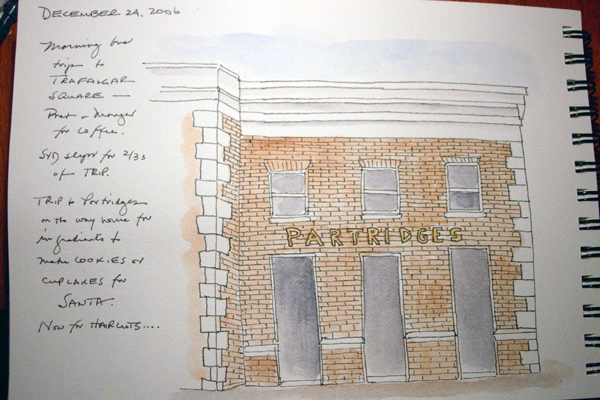 DECEMBER 24, 2006
Morning bus
trip to
TRAFALGAR
SQUARE —
Pret a Manger
for coffee.
SYD slept for 2/3s
of TRIP.
TRIP to Partridges
on the way home for
ingredients to
make COOKIES or
CUPCAKES for
SANTA.
Now for HAIRCUTS....
PARTRIDGES